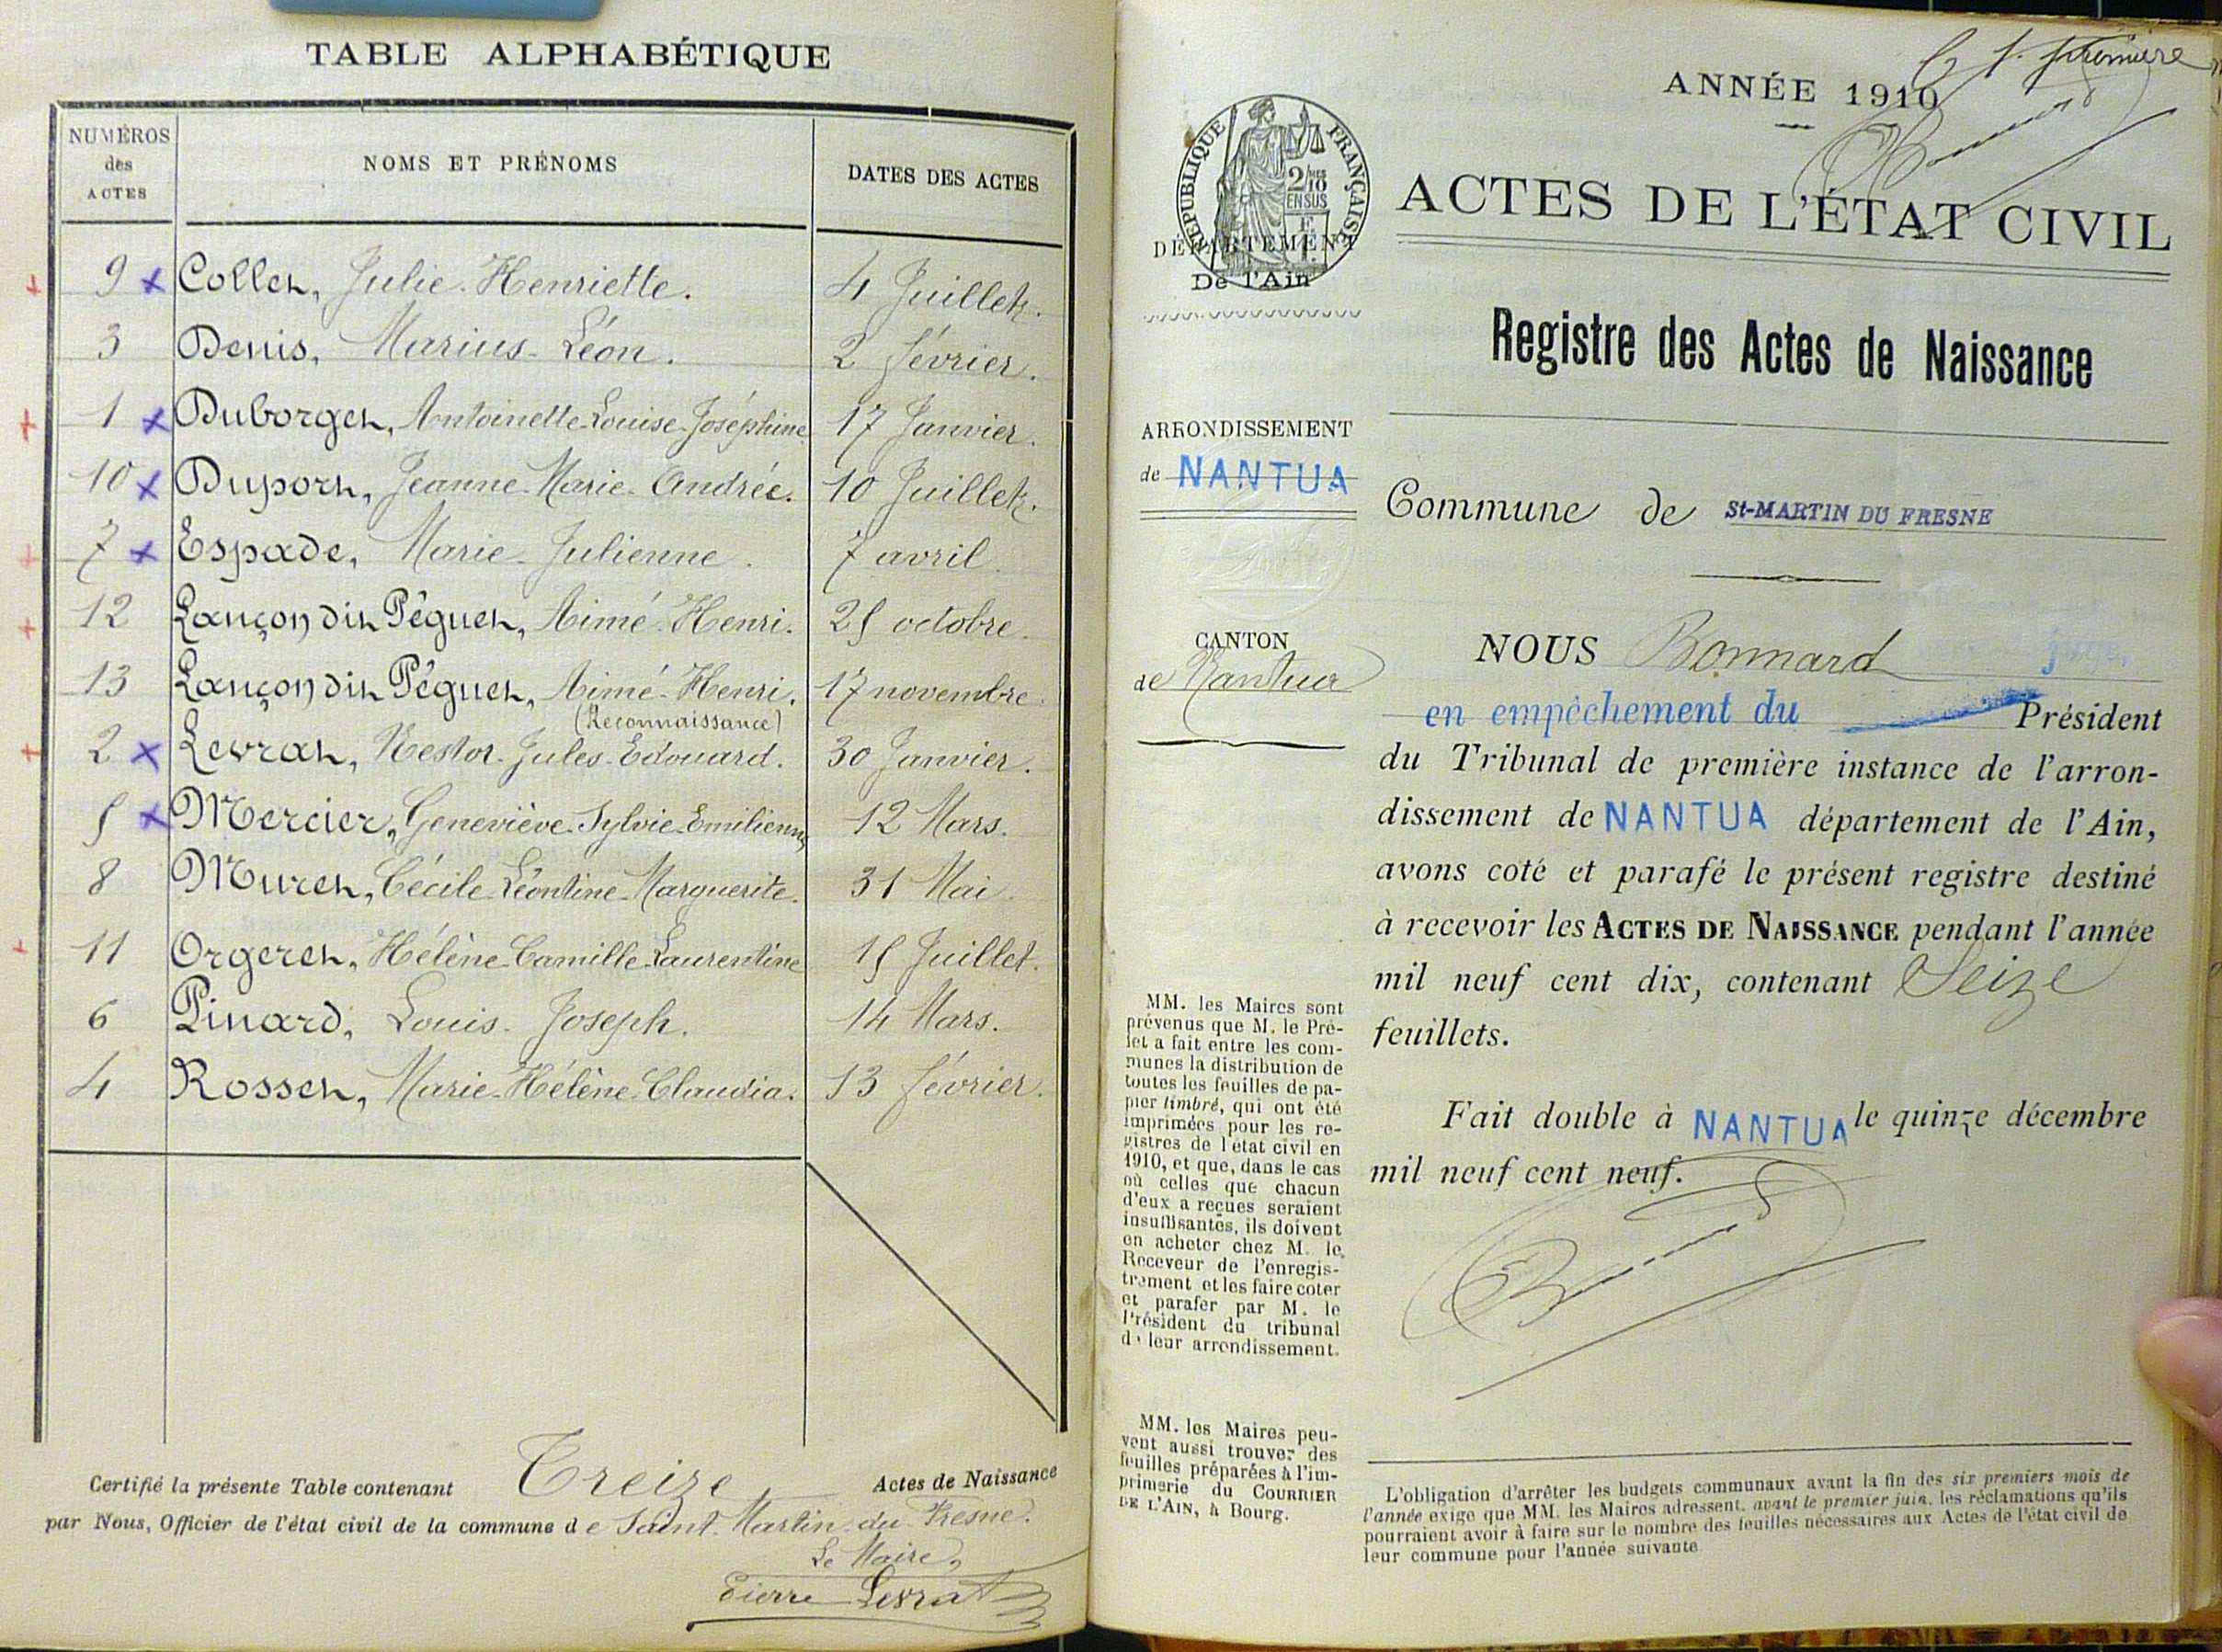 TABLE ALPHABÉTIQUE
NUMÉROS des ACTES NOMS ET PRÉNOMS DATES DES ACTES
9 Collet, Julie Henriette. 4 Juillet.
3 Denis, Marius Léon. 2 février.
1 Duborget, Antoinette Louise Joséphine 17 Janvier.
10 Duport, Jeanne Marie Andrée. 10 Juillet.
7 Espade, Marie Julienne. 7 avril.
12 Lançon dit Péguet, Aimé Henri. 25 octobre.
13 Lançon dit Péguet, Aimé Henri. 17 novembre.
(Reconnaissance)
2 Levrat, Nestor Jules Edouard. 30 Janvier.
5 Mercier, Geneviève Sylvie Emilienne 12 Mars.
8 Muret, Cécile Léontine Marguerite. 31 Mai.
11 Orgeret, Hélène Camille Laurentine 15 Juillet.
6 Pinard, Louis Joseph. 14 Mars.
4 Rosset, Marie Hélène Claudia. 13 février.
Certifié la présente Table contenant Treize Actes de Naissance
par Nous, Officier de l'état civil de la commune de Saint Martin du Fresne.
Le Maire,
Pierre Levrat
première
ANNÉE 1910
RÉPUBLIQUE FRANÇAISE
2/10 EN SUS
ACTES DE L'ÉTAT CIVIL
DÉPARTEMENT
De l'Ain
Registre des Actes de Naissance
ARRONDISSEMENT
de NANTUA
Commune de St-MARTIN DU FRESNE
CANTON
de Nantua
NOUS Bonnard juge,
en empêchement du Président
du Tribunal de première instance de l'arron-
dissement de NANTUA département de l'Ain,
avons coté et parafé le présent registre destiné
à recevoir les ACTES DE NAISSANCE pendant l'année
mil neuf cent dix, contenant Seize
feuillets.
Fait double à NANTUA le quinze décembre
mil neuf cent neuf.
MM. les Maires sont
prévenus que M. le Pré-
fet a fait entre les com-
munes la distribution de
toutes les feuilles de pa-
pier timbré, qui ont été
imprimées pour les re-
gistres de l'état civil en
1910, et que, dans le cas
où celles que chacun
d'eux a reçues seraient
insuffisantes, ils doivent
en acheter chez M. le
Receveur de l'enregis-
trement et les faire coter
et parafer par M. le
Président du tribunal
de leur arrondissement.
MM. les Maires peu-
vent aussi trouver des
feuilles préparées à l'im-
primerie du COURRIER
DE L'AIN, à Bourg.
L'obligation d'arrêter les budgets communaux avant la fin des six premiers mois de
l'année exige que MM. les Maires adressent, avant le premier juin, les réclamations qu'ils
pourraient avoir à faire sur le nombre des feuilles nécessaires aux Actes de l'état civil de
leur commune pour l'année suivante